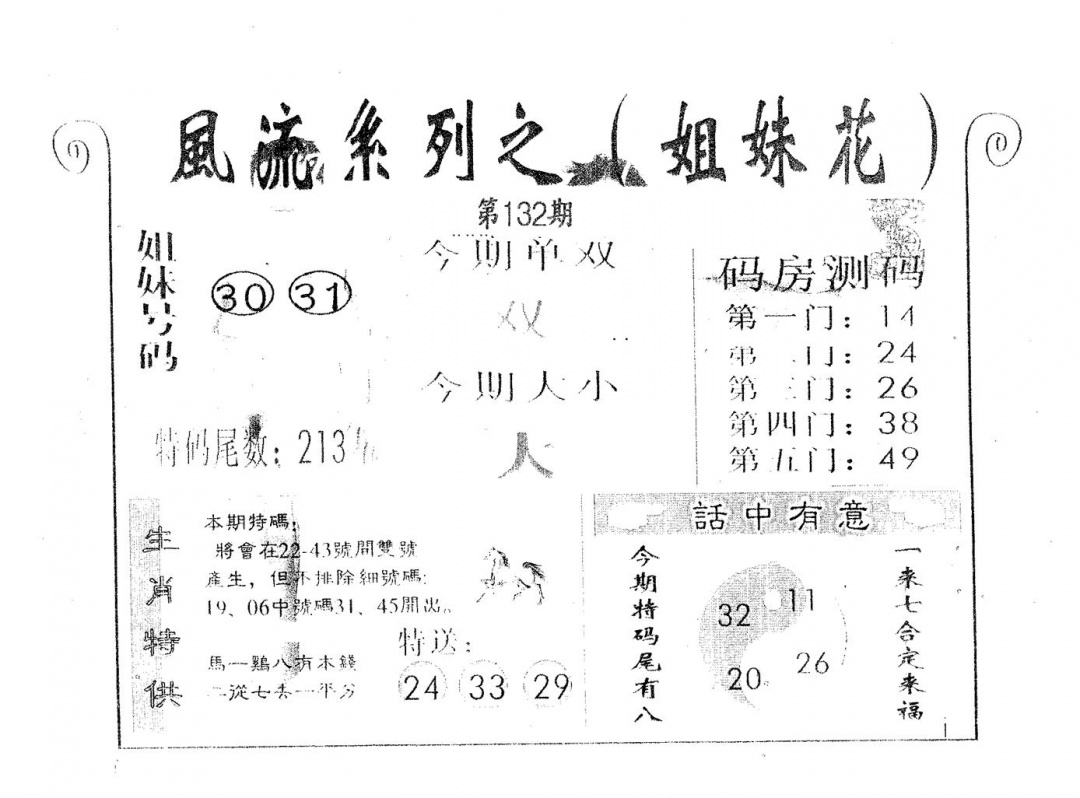 風流系列之（姐妹花）
第132期
姐妹号码
30 31
今期单双
双
今期大小
大
特码尾数：213
码房测码
第一门：14
第二门：24
第三门：26
第四门：38
第五门：49
生肖特供
本期特碼：
將會在22-43號間雙號
產生，但不排除細號碼：
19、06中號碼31、45開出。
馬一鷄八有本錢
二從七去一平分
特送：
24 33 29
話中有意
今期特码尾有八
32 11
20 26
一来七合定来福